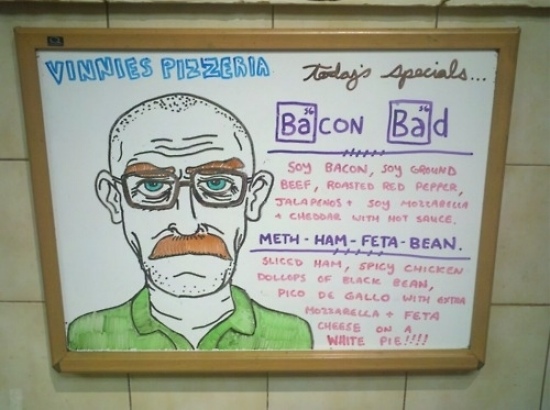 VINNIES PIZZERIA
today's specials...
56
BaCON
56
Bad
SOY BACON, SOY GROUND
BEEF, ROASTED RED PEPPER,
JALAPENOS + SOY MOZZARELLA
+ CHEDDAR WITH HOT SAUCE.
METH-HAM-FETA-BEAN.
SLICED HAM, SPICY CHICKEN
DOLLOPS OF BLACK BEAN,
PICO DE GALLO WITH EXTRA
MOZZARELLA + FETA
CHEESE ON A
WHITE PIE!!!!